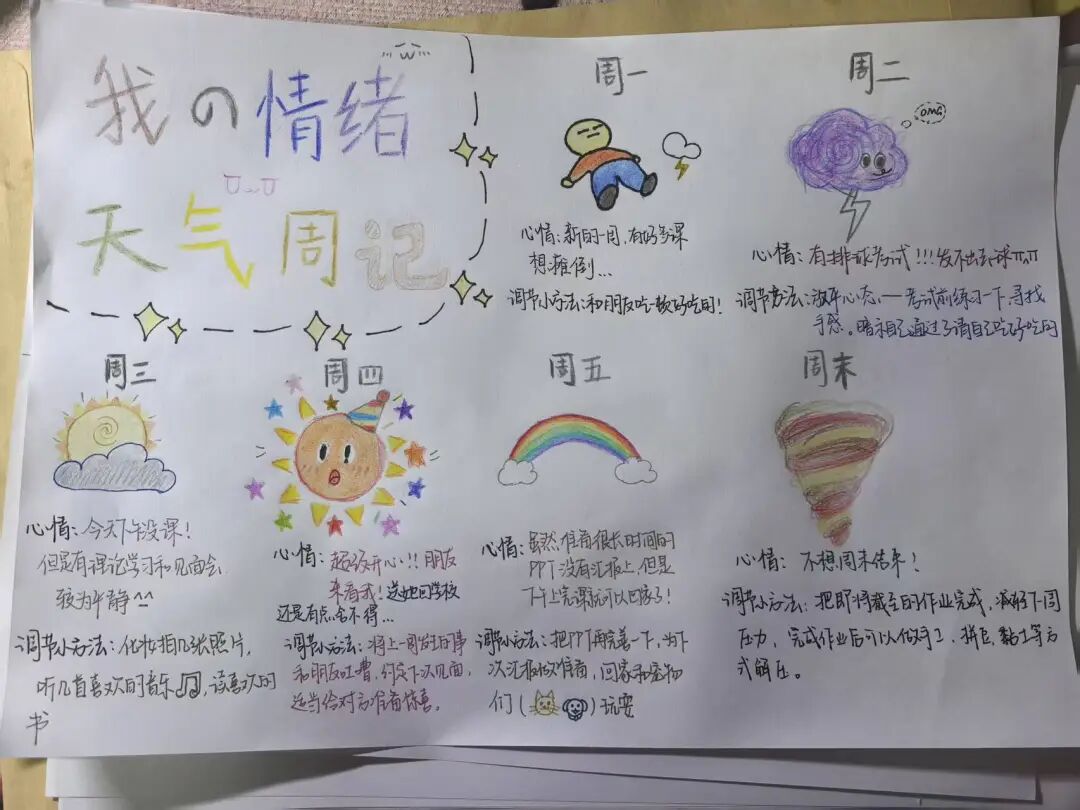 我の情绪
天气周记
周一
心情：新的一周，有好多课
想摊倒...
调节小方法：和朋友吃一顿好吃的！
周二
OMG
心情：有排球考试！！！发不出去球
调节方法：放平心态，考试前练习一下，寻找
手感。暗示自己通过了请自己吃好吃的
周三
心情：今天下午没课！
但是有理论学习和见面会
较为平静^^
调节小方法：化妆拍几张照片，
听几首喜欢的音乐，读喜欢的
书
周四
心情：超级开心！！朋友
来看我！送她回学校
还是有点舍不得...
调节小方法：将上周发生的事
和朋友吐槽，约定下次见面，
适当给对方准备惊喜。
周五
心情：虽然准备很长时间的
PPT没有汇报上，但是
下午上完课就可以回家了！
调节小方法：把PPT再完善一下，为下
次汇报做准备，回家和宠物
们（）玩耍
周末
心情：不想周末结束！
调节小方法：把即将截至的作业完成，减轻下周
压力，完成作业后可以做手工，拼豆，黏土等方
式解压。